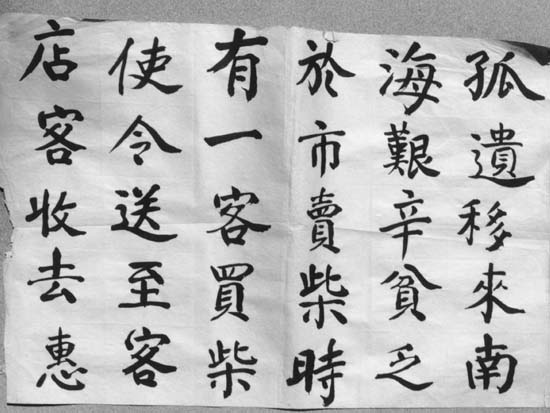 孤遺移來南
海艱辛貧乏
於市賣柴時
有一客買柴
使令送至客
店客收去惠